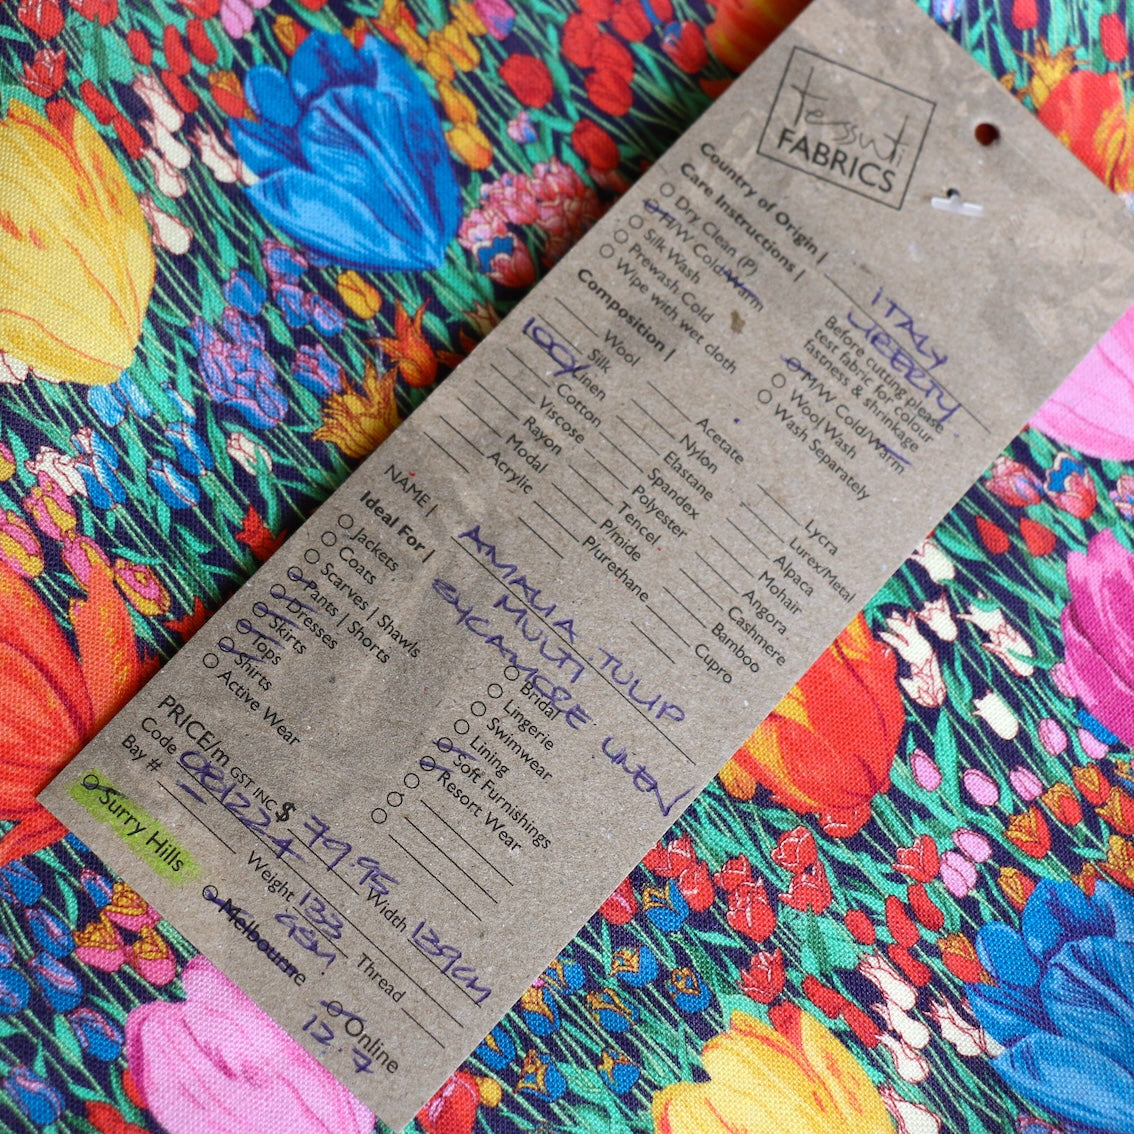 tessuti
FABRICS
Country of Origin | ITALY
LIBERTY
Care Instructions |
Dry Clean (P)
H/W Cold/Warm
Silk Wash
Prewash Cold
Wipe with wet cloth
Before cutting please
test fabric for colour
fastness & shrinkage
M/W Cold/Warm
Wool Wash
Wash Separately
Composition |
Wool
Silk
100% Linen
Cotton
Viscose
Rayon
Modal
Acrylic
Acetate
Nylon
Elastane
Spandex
Polyester
Tencel
P/mide
P/urethane
Lycra
Lurex/Metal
Alpaca
Mohair
Angora
Cashmere
Bamboo
Cupro
NAME | AMALIA TULIP
MULTI
SYCAMORE LINEN
Ideal For |
Jackets
Coats
Scarves | Shawls
Pants | Shorts
Dresses
Skirts
Tops
Shirts
Active Wear
Bridal
Lingerie
Swimwear
Lining
Soft Furnishings
Resort Wear
PRICE/m GST INC $ 79.95
Code 081224
Width 139cm
Bay #
Weight 133
GSM
Thread
Surry Hills
Melbourne
Online
12.7